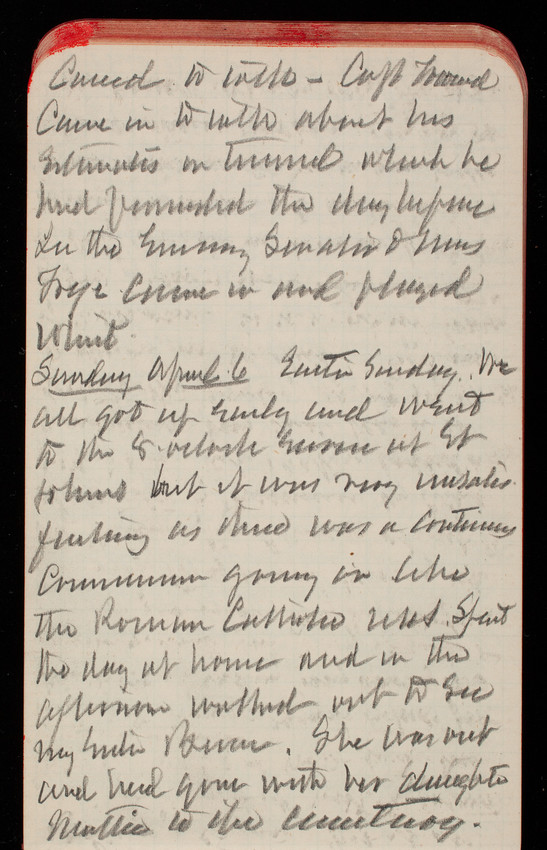 Council to talk - Capt
Came in to talk about his
Estimates on tunnel which he
had the day before
In the Evening Senator & Mrs
Frye came in and played
Whist
Sunday April 6 Easter Sunday. We
all got up Early and went
to the 8 oclock Service at St
Johns but it was very unsatis-
factory as there was a continuous
Communion going on like
the Roman Catholic Spent
the day at home and in the
afternoon walked out to See
my Sister She was out
and had gone with her daughter
Mattie to the cemetery.